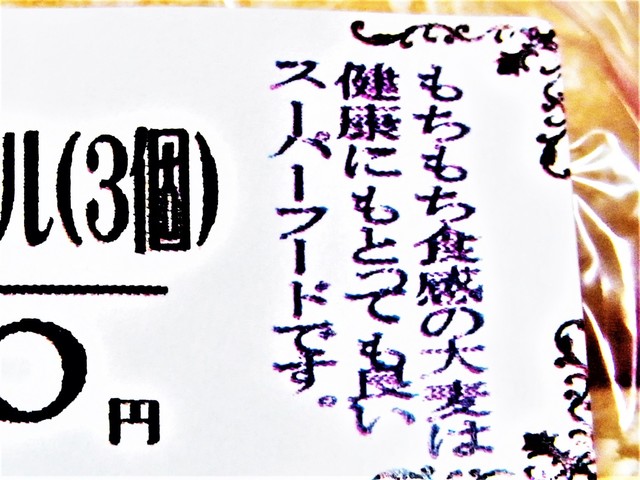 もちもち食感の大麦は
健康にもとっても良い
スーパーフードです。
ル(3個)
0円